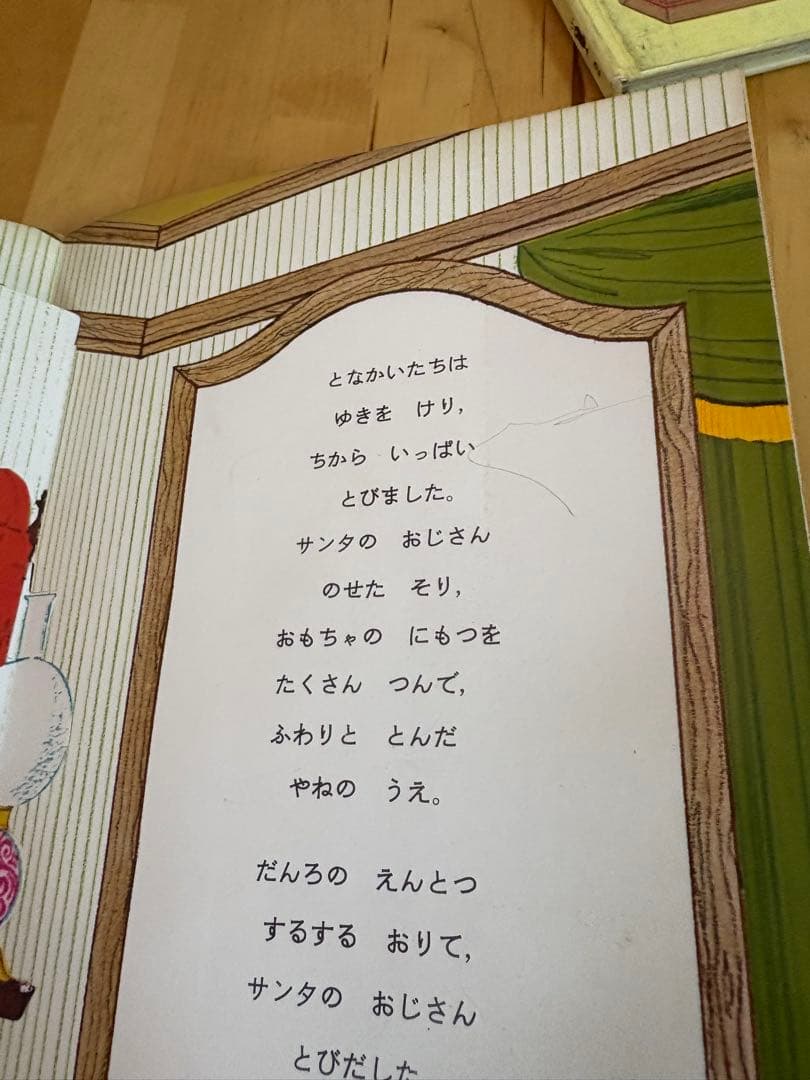 となかいたちは
ゆきを　けり，
ちから　いっぱい
とびました。
サンタの　おじさん
のせた　そり，
おもちゃの　にもつを
たくさん　つんで，
ふわりと　とんだ
やねの　うえ。
だんろの　えんとつ
するする　おりて，
サンタの　おじさん
とびだした